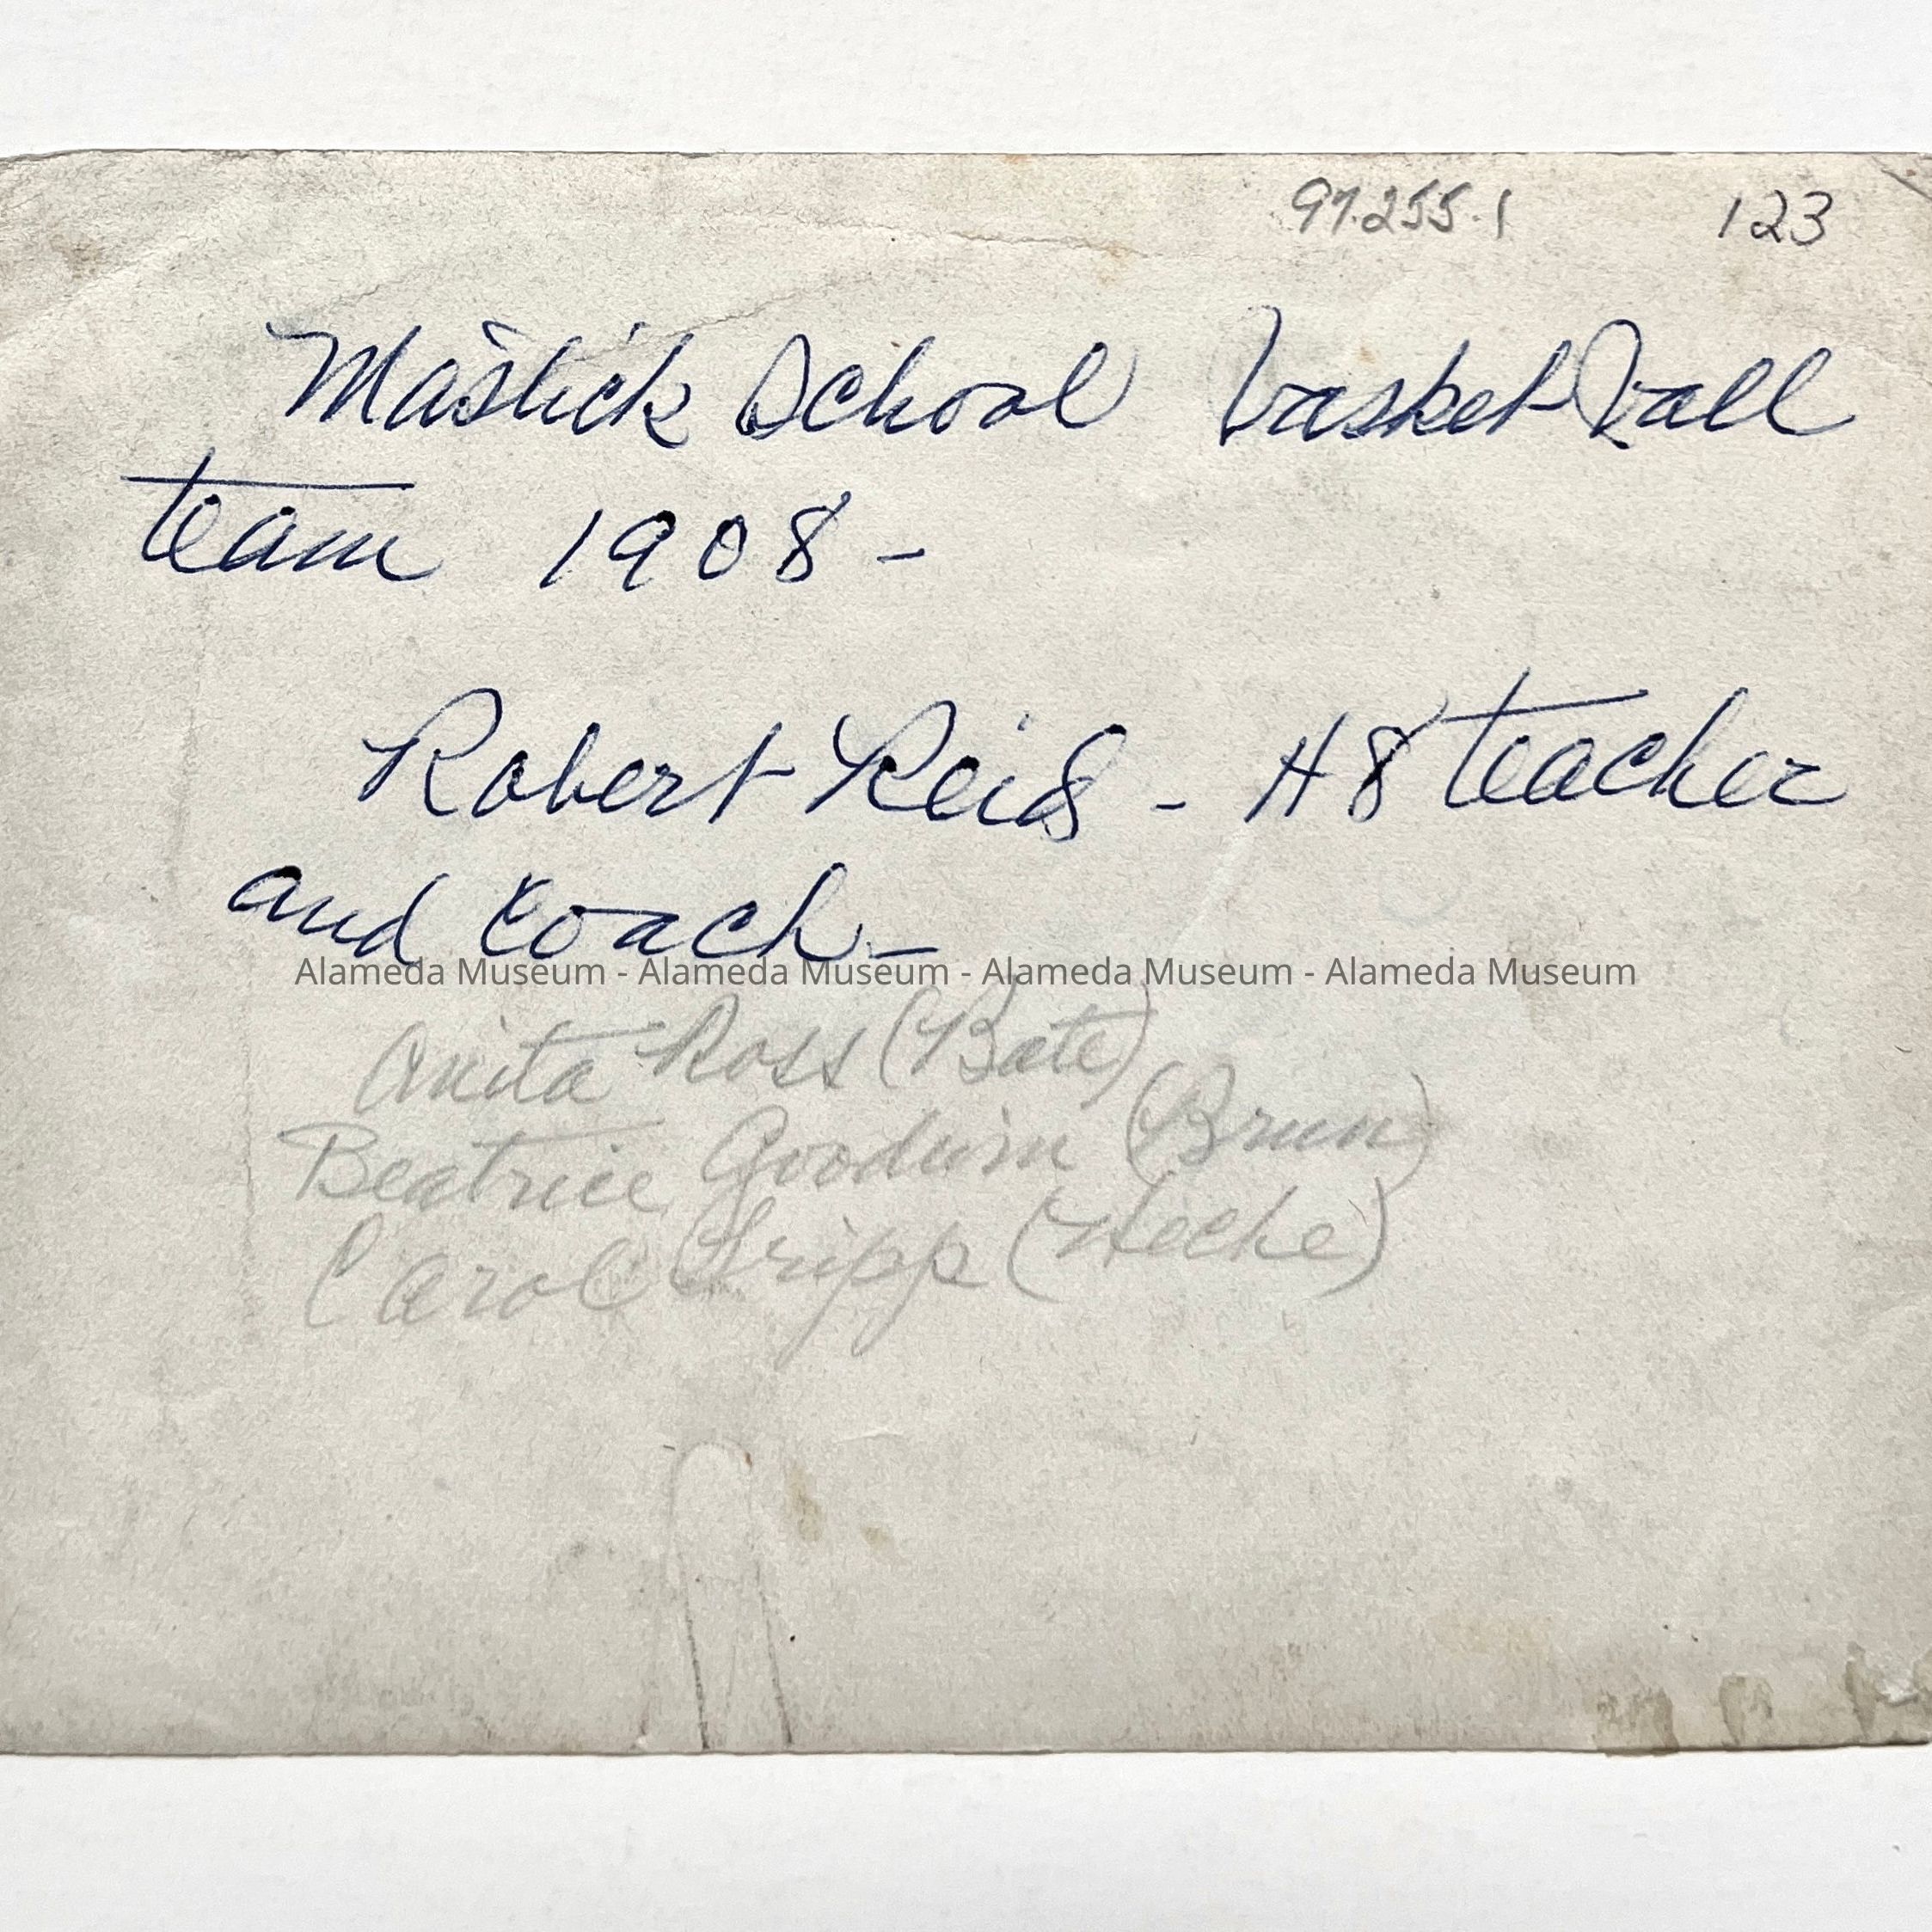 97.255.1 123
Mastick School basket ball
team 1908 -
Robert Reid - H8 teacher
and coach -
Alameda Museum - Alameda Museum - Alameda Museum - Alameda Museum
Anita Ross (Bate)
Beatrice Goodwin (Brun)
Carol Gripp (Heche)